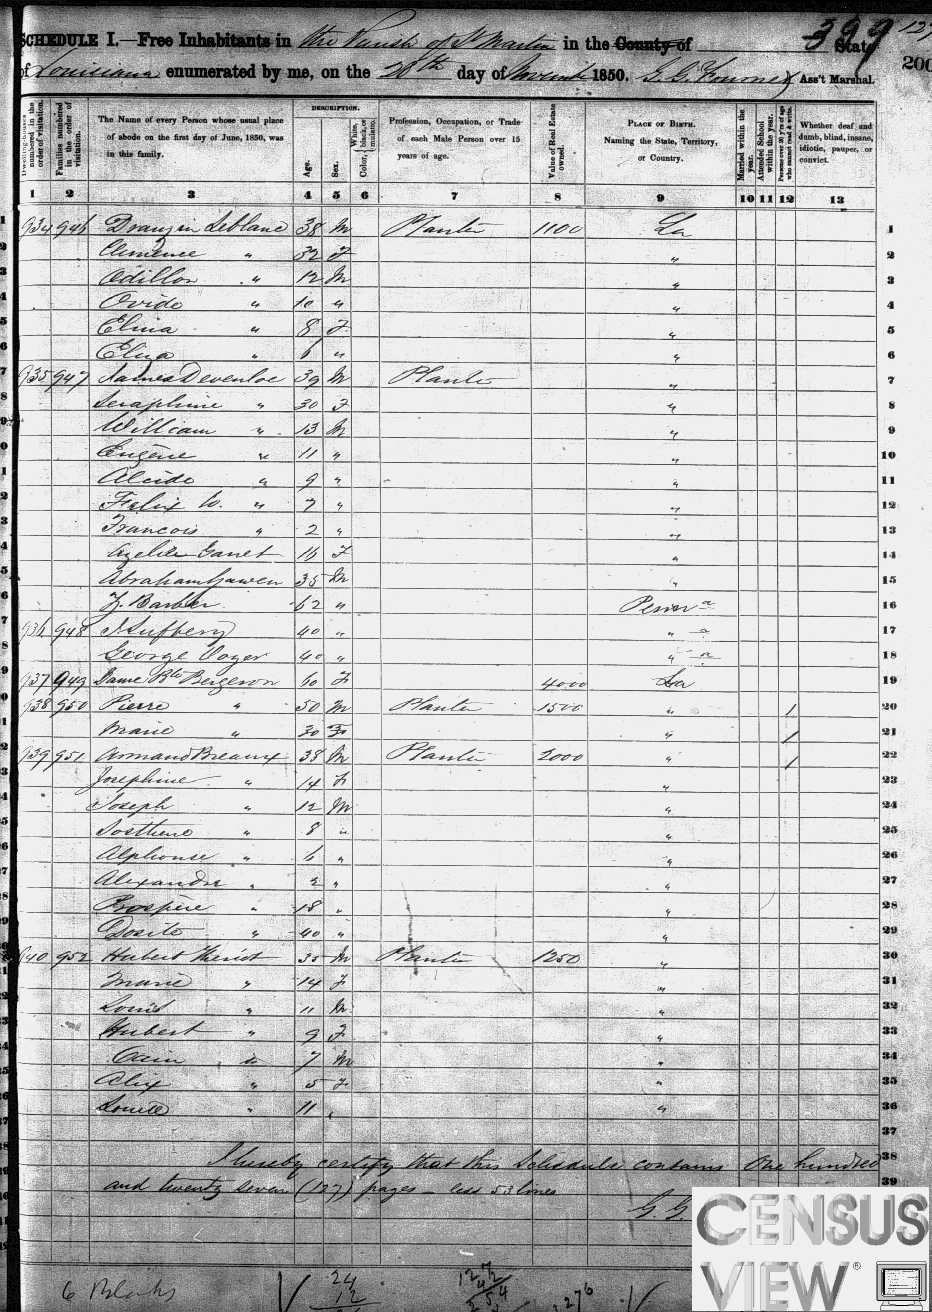 399 127
SCHEDULE I.—Free Inhabitants in the Parish of St Martin in the County of State
of Louisiana enumerated by me, on the 20th day of November 1850. Ass't Marshal. 200
Dwelling-houses numbered in the order of visitation.
Families numbered in the order of visitation.
The Name of every Person whose usual place of abode on the first day of June, 1850, was in this family.
DESCRIPTION.
Age.
Sex.
Color, White, black, or mulatto.
Profession, Occupation, or Trade of each Male Person over 15 years of age.
Value of Real Estate owned.
PLACE OF BIRTH. Naming the State, Territory, or Country.
Married within the year.
Attended School within the year.
Persons over 20 y'rs of age who cannot read & write.
Whether deaf and dumb, blind, insane, idiotic, pauper, or convict.
1 2 3 4 5 6 7 8 9 10 11 12 13
1 934 946 Drauzin Leblanc 38 M Planter 1100 La 1
2 Clemence " 32 F " 2
3 Odillon " 12 M " 3
4 Ovide " 10 " " 4
5 Elina " 8 F " 5
6 Eliza " 6 " " 6
7 935 947 James Devenloe 39 M Planter " 7
8 Seraphine " 30 F " 8
9 William " 13 M " 9
0 Eugène " 11 " " 10
1 Alcide " 9 " " 11
2 Felix W. " 7 " " 12
3 Francois " 2 " " 13
4 Azelie Garret 16 F " 14
5 Abraham 35 M " 15
6 Barber 62 " Penn a 16
7 936 948 40 " " a 17
8 George 40 " " a 18
9 937 949 Dame Bte Bergeron 60 F 4000 La 19
0 938 950 Pierre " 50 M Planter 1500 " / 20
1 Marie " 30 F " / 21
2 939 951 Armand Breaux 38 M Planter 2000 " / 22
3 Josephine " 14 F " 23
4 Joseph " 12 M " 24
5 Sosthene " 8 " " 25
6 Alphonse " 6 " " 26
7 Alexandre " 2 " " 27
8 Prospère " 18 " " 28
9 Dosite " 40 " " 29
0 940 952 Hubert Theriot 35 M Planter 1250 " 30
1 Marie " 14 F " 31
2 Louis " 11 M " 32
3 Hubert " 9 F " 33
4 " 7 M " 34
5 Alix " 5 F " 35
6 " 11 " " 36
37
I hereby certify that this Schedule contains One hundred 38
and twenty seven (127) pages – less 53 lines 39
G. G.
6 Blanks 24 12
276
CENSUS
VIEW®